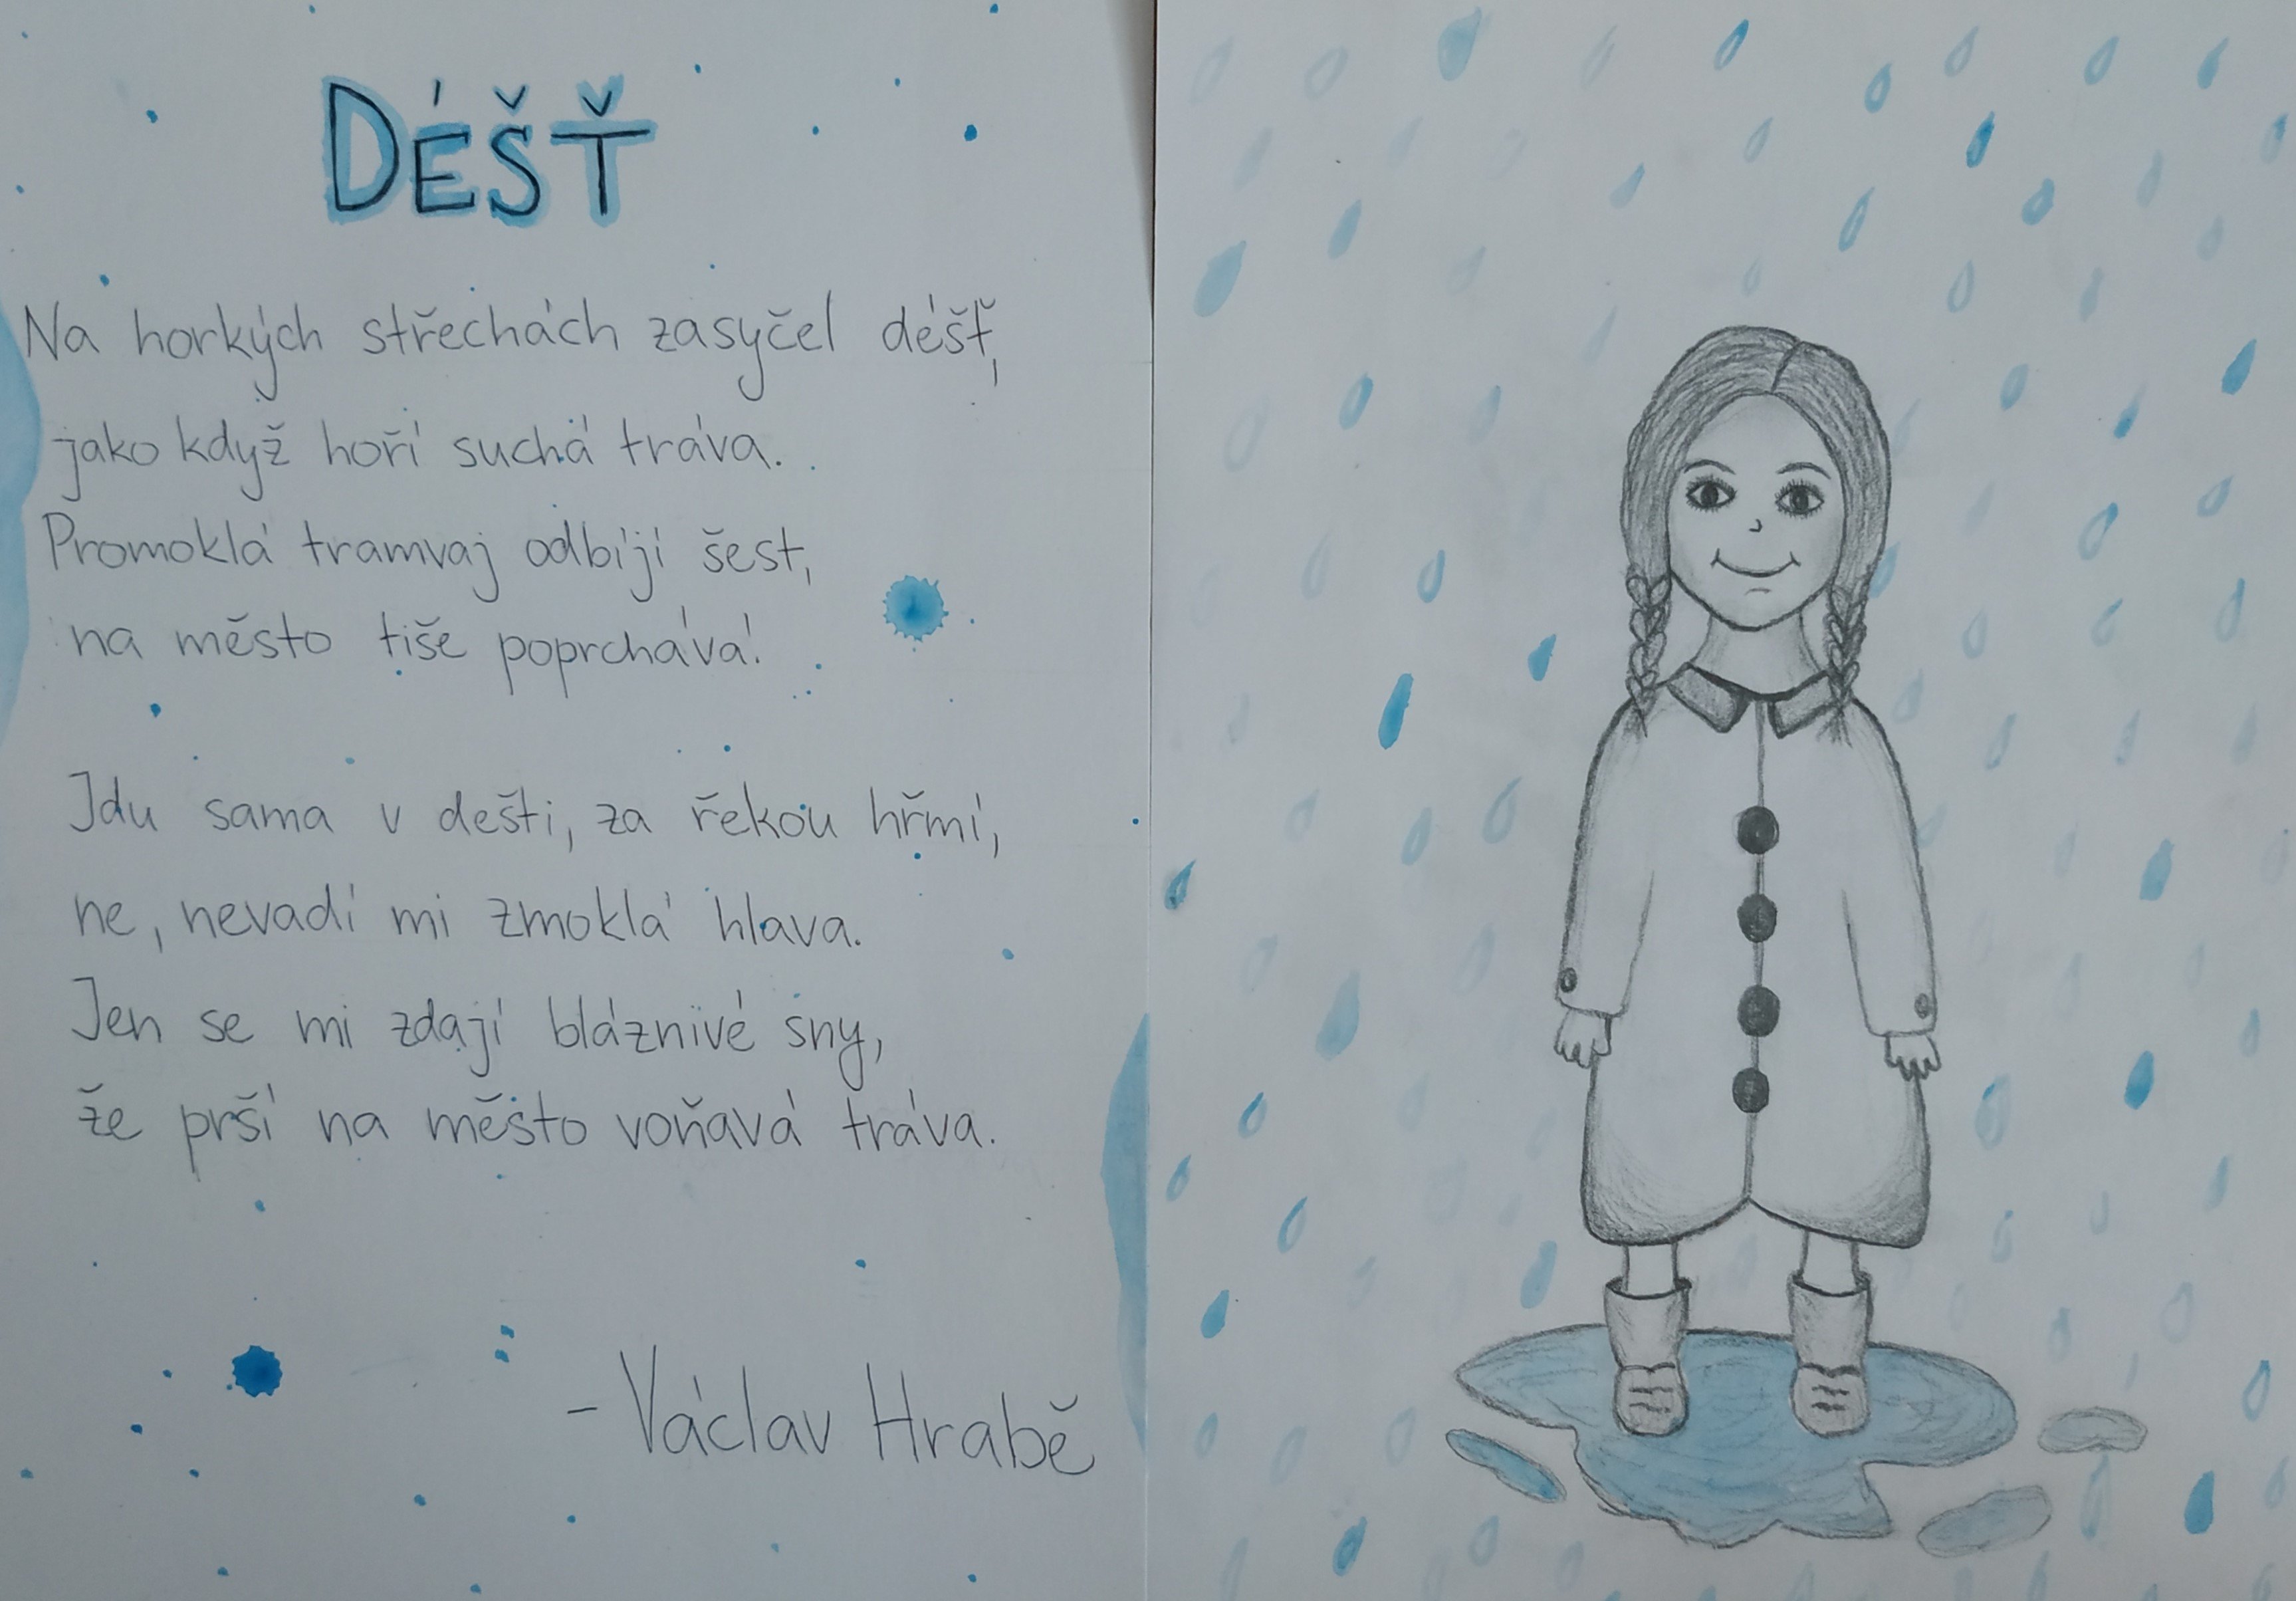 DÉŠŤ
Na horkých střechách zasyčel déšť,
jako když hoří suchá tráva.
Promoklá tramvaj odbíjí šest,
na město tiše poprchává.
Jdu sama v dešti, za řekou hřmí,
ne, nevadí mi zmoklá hlava.
Jen se mi zdají bláznivé sny,
že prší na město voňavá tráva.
- Václav Hrabě